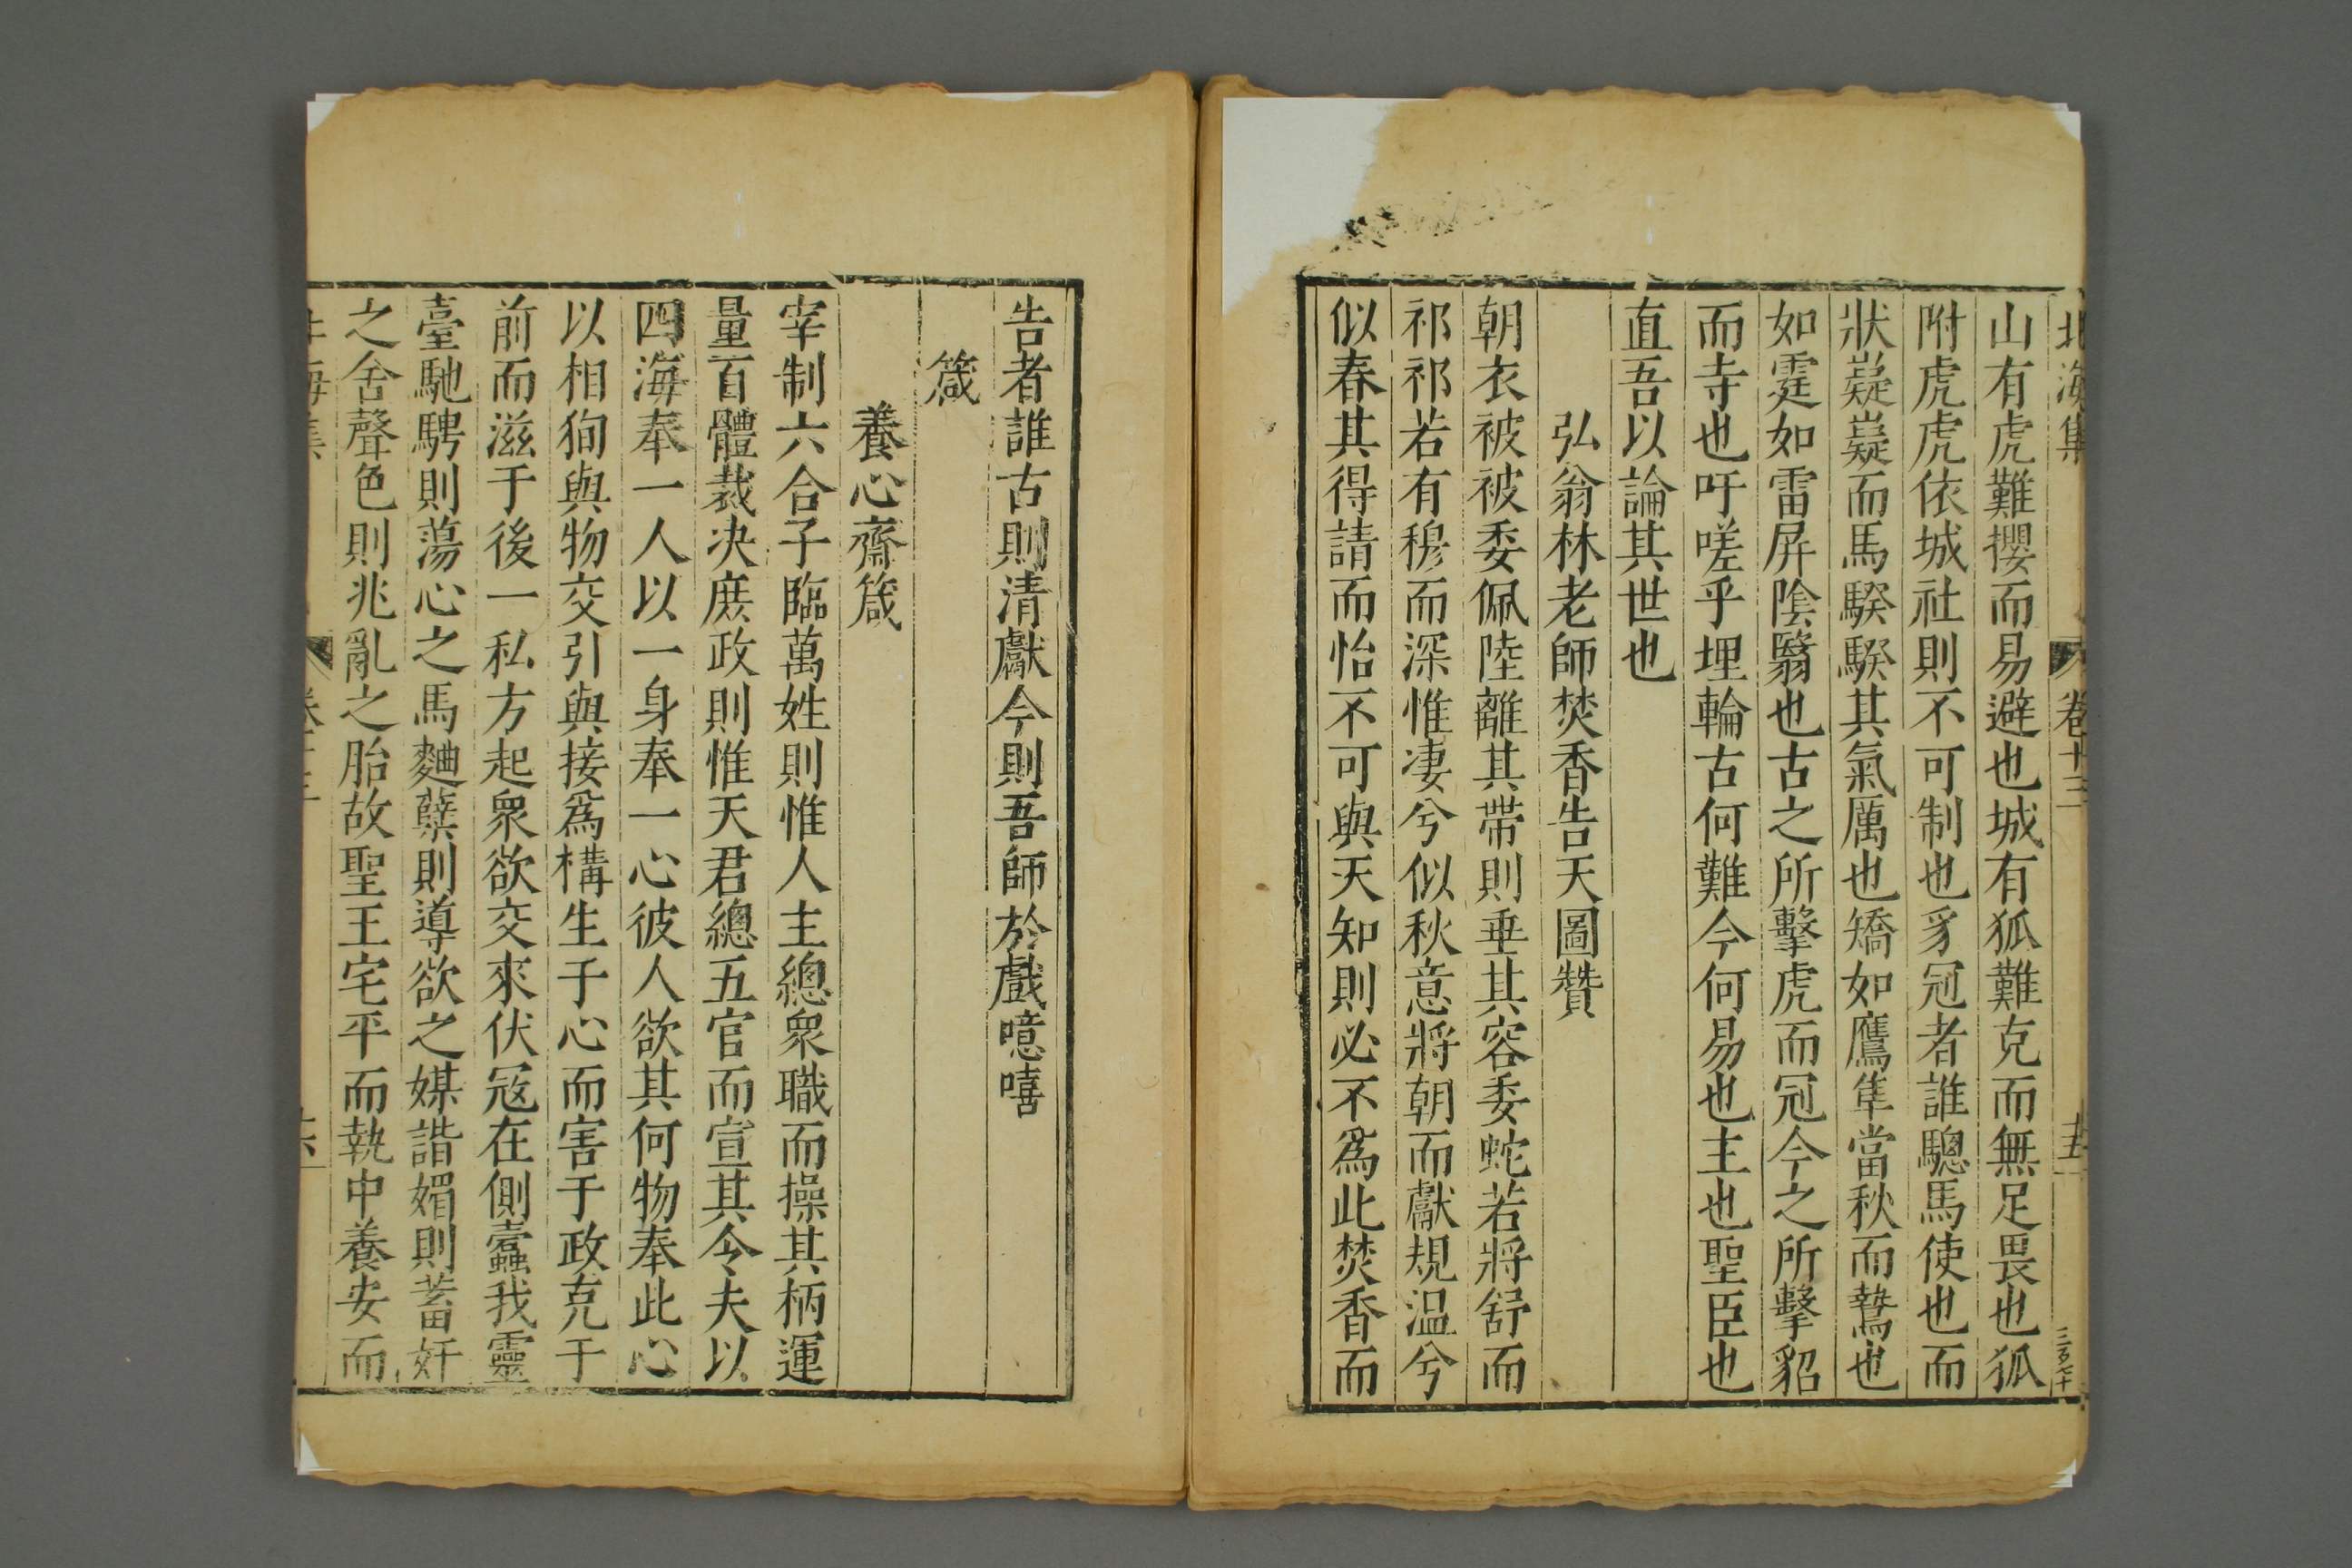 北海集 卷十三 十五 三百七十
山有虎難攖而易避也城有狐難克而無足畏也狐
附虎虎依城社則不可制也豸冠者誰驄馬使也而
狀嶷嶷而馬騤騤其氣厲也矯如鷹隼當秋而鷙也
如霆如雷屏陰翳也古之所擊虎而冠今之所擊貂
而寺也吁嗟乎埋輪古何難今何易也主也聖臣也
直吾以論其世也
弘翁林老師焚香告天圖贊
朝衣被被委佩陸離其帶則垂其容委蛇若將舒而
祁祁若有穆而深惟凄兮似秋意將朝而獻規温兮
似春其得請而怡不可與天知則必不為此焚香而
告者誰古則清獻今則吾師於戲噫嘻
箴
養心齋箴
宰制六合子臨萬姓則惟人主總衆職而操其柄運
量百體裁决庶政則惟天君總五官而宣其令夫以
四海奉一人以一身奉一心彼人欲其何物奉此心
以相狥與物交引與接爲構生于心而害于政克于
前而滋于後一私方起衆欲交來伏冦在側蠹我靈
臺馳騁則蕩心之馬麯糵則導欲之媒諧媚則蓄奸
之舍聲色則兆亂之胎故聖王宅平而執中養安而
海集 卷十三